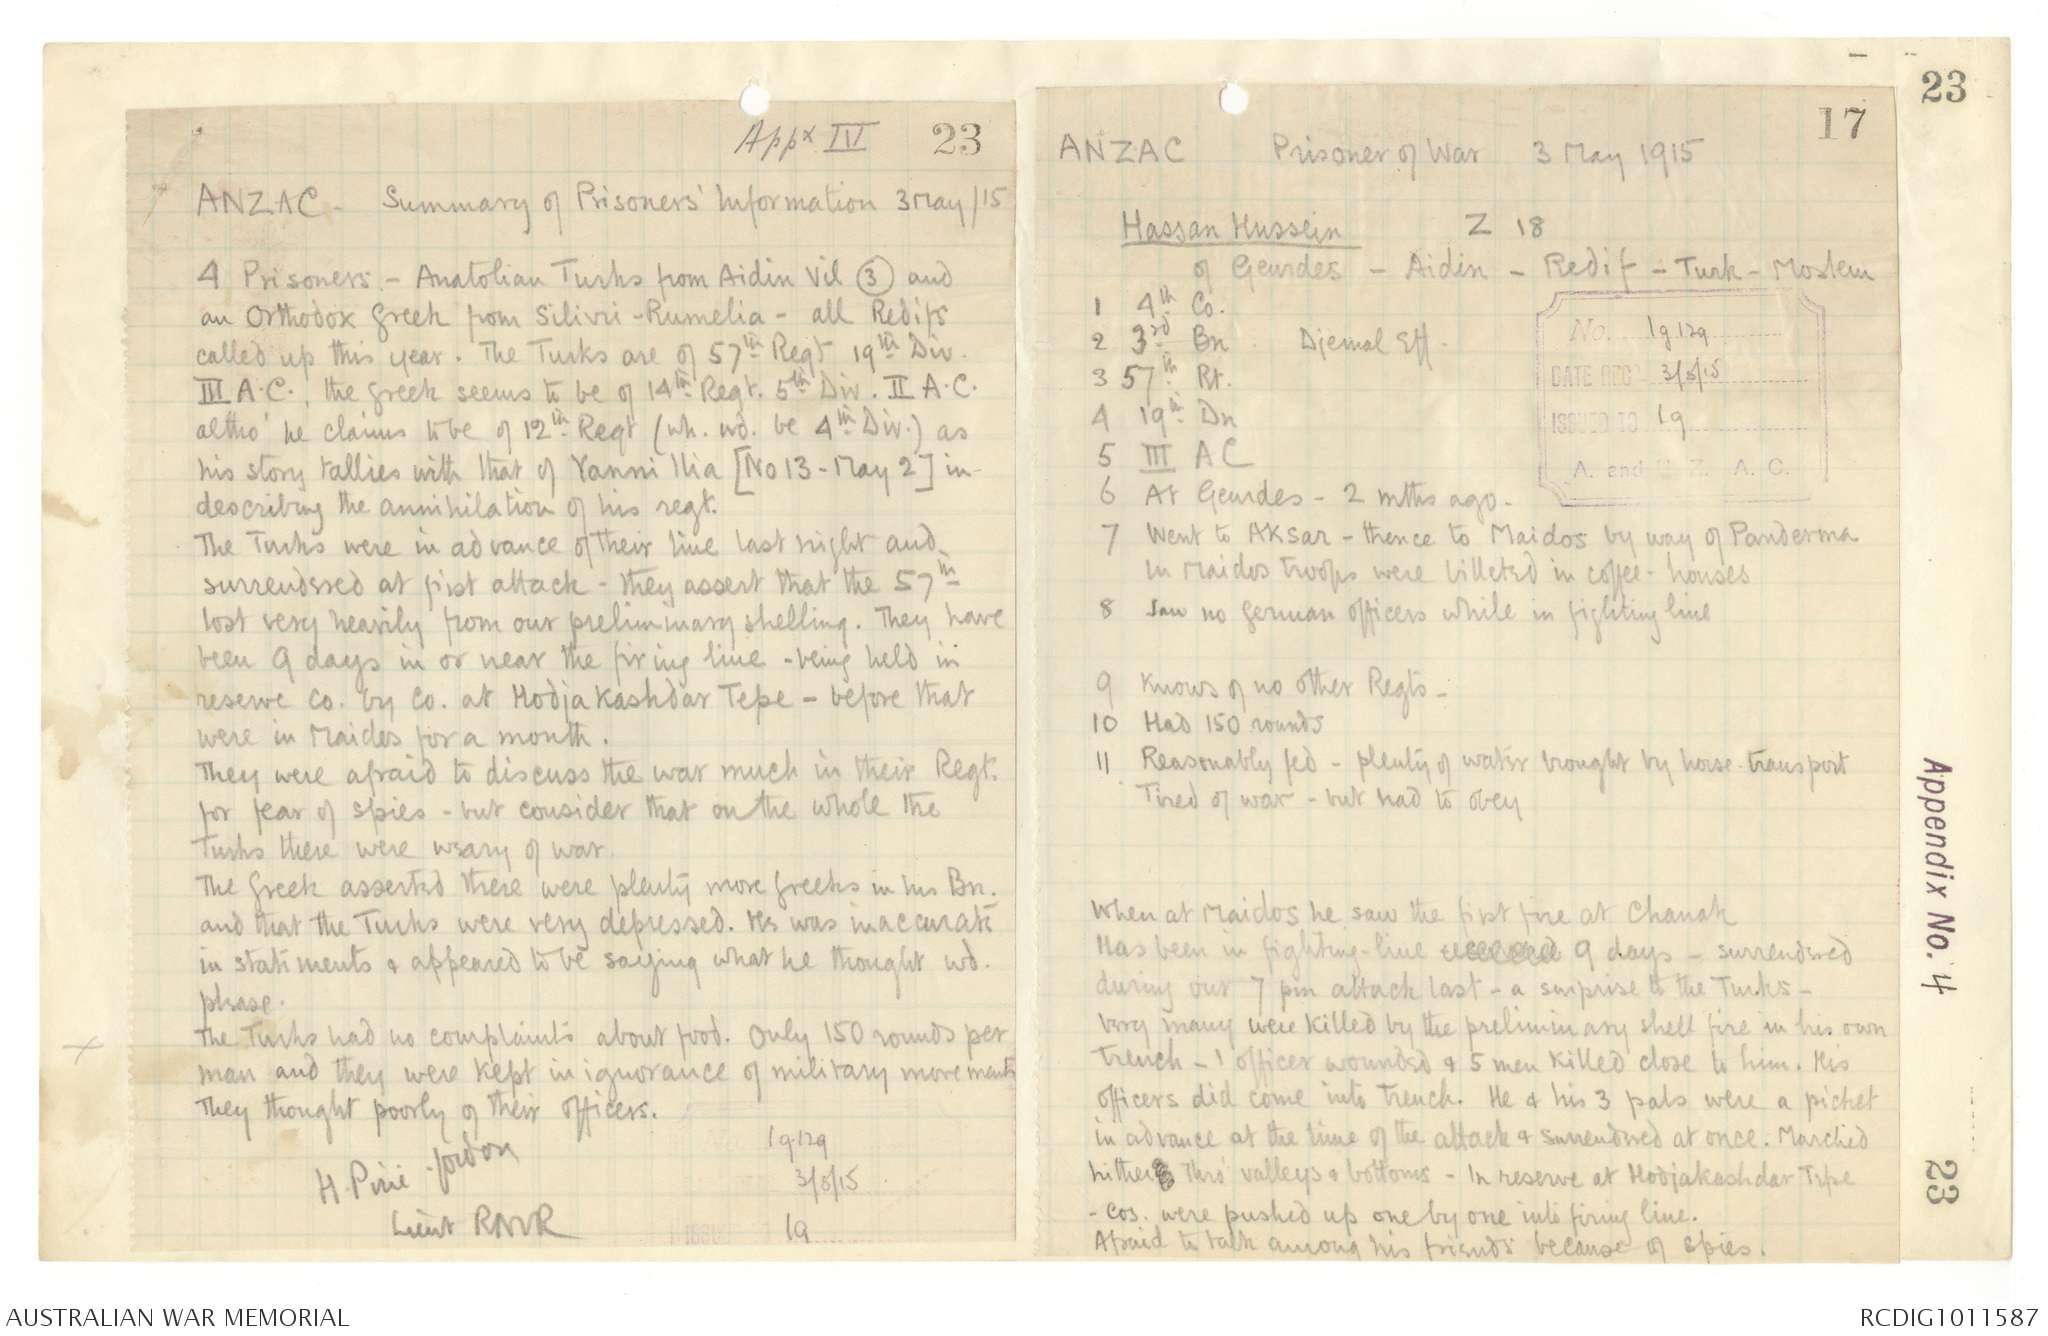 Appx IV 23
ANZAC - Summary of Prisoners' Information 3 May/15
4 Prisoners - Anatolian Turks from Aidin Vil (3) and
an Orthodox Greek from Silivri - Rumelia - all Redifs
called up this year. The Turks are of 57th Regt 19th Div.
III A.C., the Greek seems to be of 14th Regt. 5th Div. II A.C.
altho' he claims to be of 12th Regt (wh. wd. be 4th Div.) as
his story tallies with that of Yanni Ilia [No 13 - May 2] in
describing the annihilation of his regt.
The Turks were in advance of their line last night and
surrendered at first attack - they assert that the 57th
lost very heavily from our preliminary shelling. They have
been 9 days in or near the firing line - being held in
reserve Co. by Co. at Hodja Kashdar Tepe - before that
were in Maidos for a month.
They were afraid to discuss the war much in their Regt.
for fear of spies - but consider that on the whole the
Turks there were weary of war.
The Greek asserted there were plenty more Greeks in his Bn.
and that the Turks were very depressed. He was inaccurate
in statements & appeared to be saying what he thought wd.
please.
The Turks had no complaints about food. Only 150 rounds per
man and they were kept in ignorance of military movements
They thought poorly of their officers.
H. Pirie-Gordon
Lieut RNVR
Ig 129
3/5/15
ISSUED
Ig
17
ANZAC Prisoner of War 3 May 1915
Hassan Hussein Z 18
of Geurdes - Aidin - Redif - Turk - Moslem
1 4th Co.
2 3rd Bn. Djemal Eff.
3 57th Rt.
4 19th Dn
5 III AC
6 At Geurdes - 2 mths ago.
7 Went to Aksar - thence to Maidos by way of Panderma
In Maidos troops were billeted in coffee-houses
8 Saw no German officers while in fighting line
9 Knows of no other Regts -
10 Had 150 rounds
11 Reasonably fed - plenty of water brought by horse-transport
Tired of war - but had to obey
When at Maidos he saw the first fire at Chanak
Has been in fighting-line 9 days - surrendered
during our 7 pm attack last - a surprise to the Turks -
very many were killed by the preliminary shell fire in his own
trench - 1 officer wounded & 5 men killed close to him. His
officers did come into trench. He & his 3 pals were a picket
in advance at the time of the attack & surrendered at once. Marched
hither thro' valleys & bottoms - In reserve at Hodjakashdar Tepe
- Cos. were pushed up one by one into firing line.
Afraid to talk among his friends because of spies.
No. Ig 129
DATE REC'D 3/5/15
ISSUED TO Ig
A. and N. Z. A. C.
23
Appendix No. 4
23
AUSTRALIAN WAR MEMORIAL
RCDIG1011587